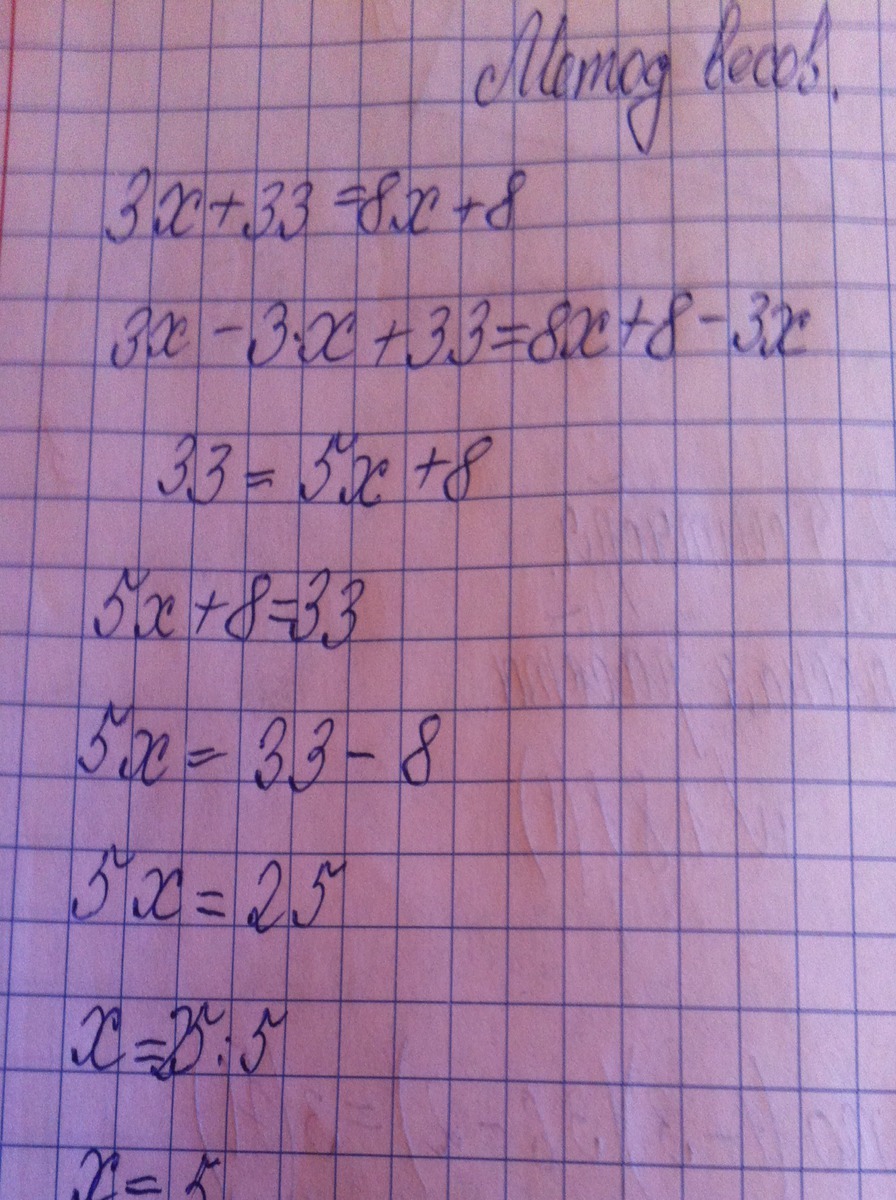 Метод весов.
3x+33=8x+8
3x-3·x+33=8x+8-3x
33=5x+8
5x+8=33
5x=33-8
5x=25
x=25:5
x=5